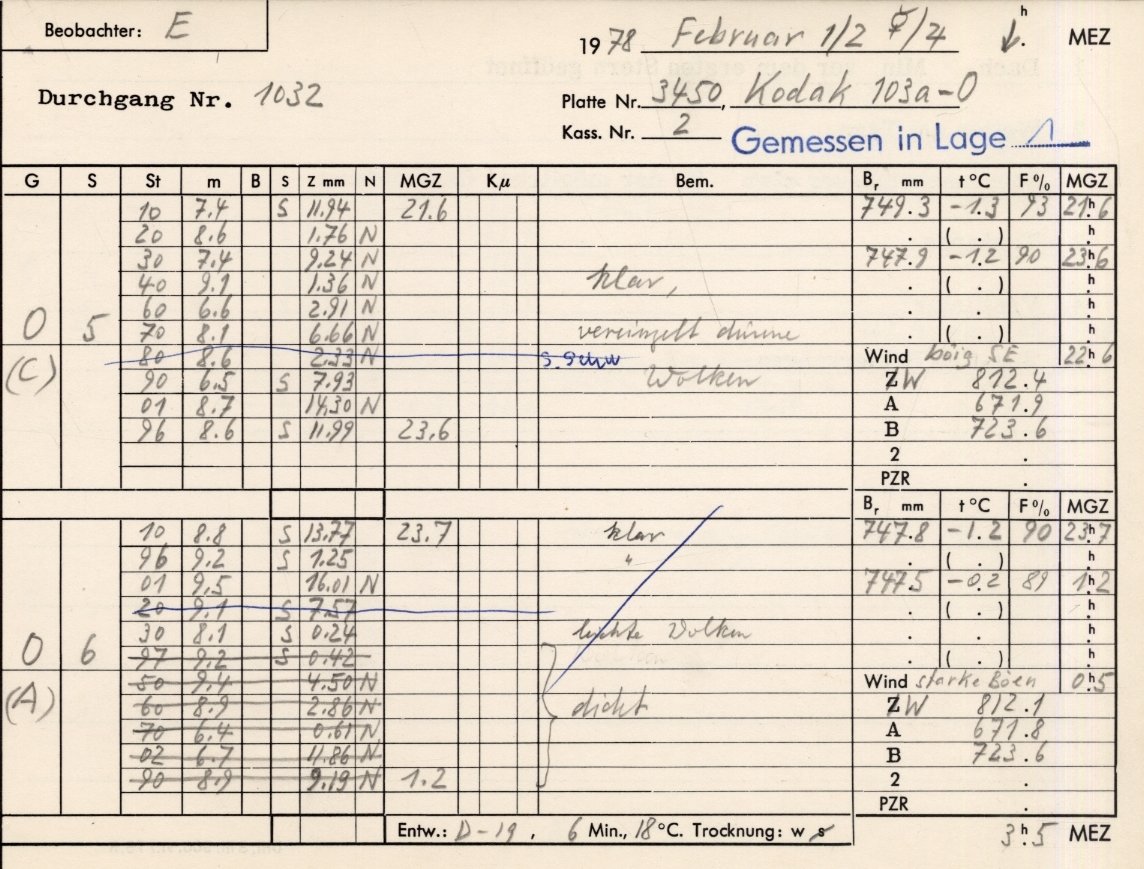 Beobachter: E
1978 Februar 1/2 ☿/4 h MEZ
Durchgang Nr. 1032
Platte Nr. 3450, Kodak 103a-O
Kass. Nr. 2
Gemessen in Lage 1
G S St m B S Z mm N MGZ Kμ Bem. Br mm t °C F% MGZ
10 7.4 S 11.94 21.6 749.3 -1.3 93 21h.6
20 8.6 1.76 N . ( . ) h.
30 7.4 9.24 N 747.9 -1.2 90 23h.6
40 9.1 1.36 N klar, . ( . ) h.
60 6.6 2.91 N . . h.
O 5 70 8.1 6.66 N vereinzelt dünne . ( . ) h.
(C) 80 8.6 2.33 N s. Schw Wind böig SE 22h.6
90 6.5 S 7.93 Wolken ZW 812.4
01 8.7 14.30 N A 671.9
96 8.6 S 11.99 23.6 B 723.6
2 .
PZR .
Br mm t °C F% MGZ
10 8.8 S 13.77 23.7 klar 747.8 -1.2 90 23h.7
96 9.2 S 1.25 " . ( . ) h.
01 9.5 16.01 N 747.5 -0.2 89 1h.2
20 9.1 S 7.57 . ( . ) h.
30 8.1 S 0.24 leichte Wolken . . h.
O 6 97 9.2 S 0.42 . ( . ) h.
(A) 50 9.4 4.50 N Wind starke Böen 0h.5
60 8.9 2.86 N dicht ZW 812.1
70 6.4 0.61 N A 671.8
02 6.7 11.86 N B 723.6
90 8.9 9.19 N 1.2 2 .
PZR .
Entw.: D-19, 6 Min., 18°C. Trocknung: w s 3h.5 MEZ